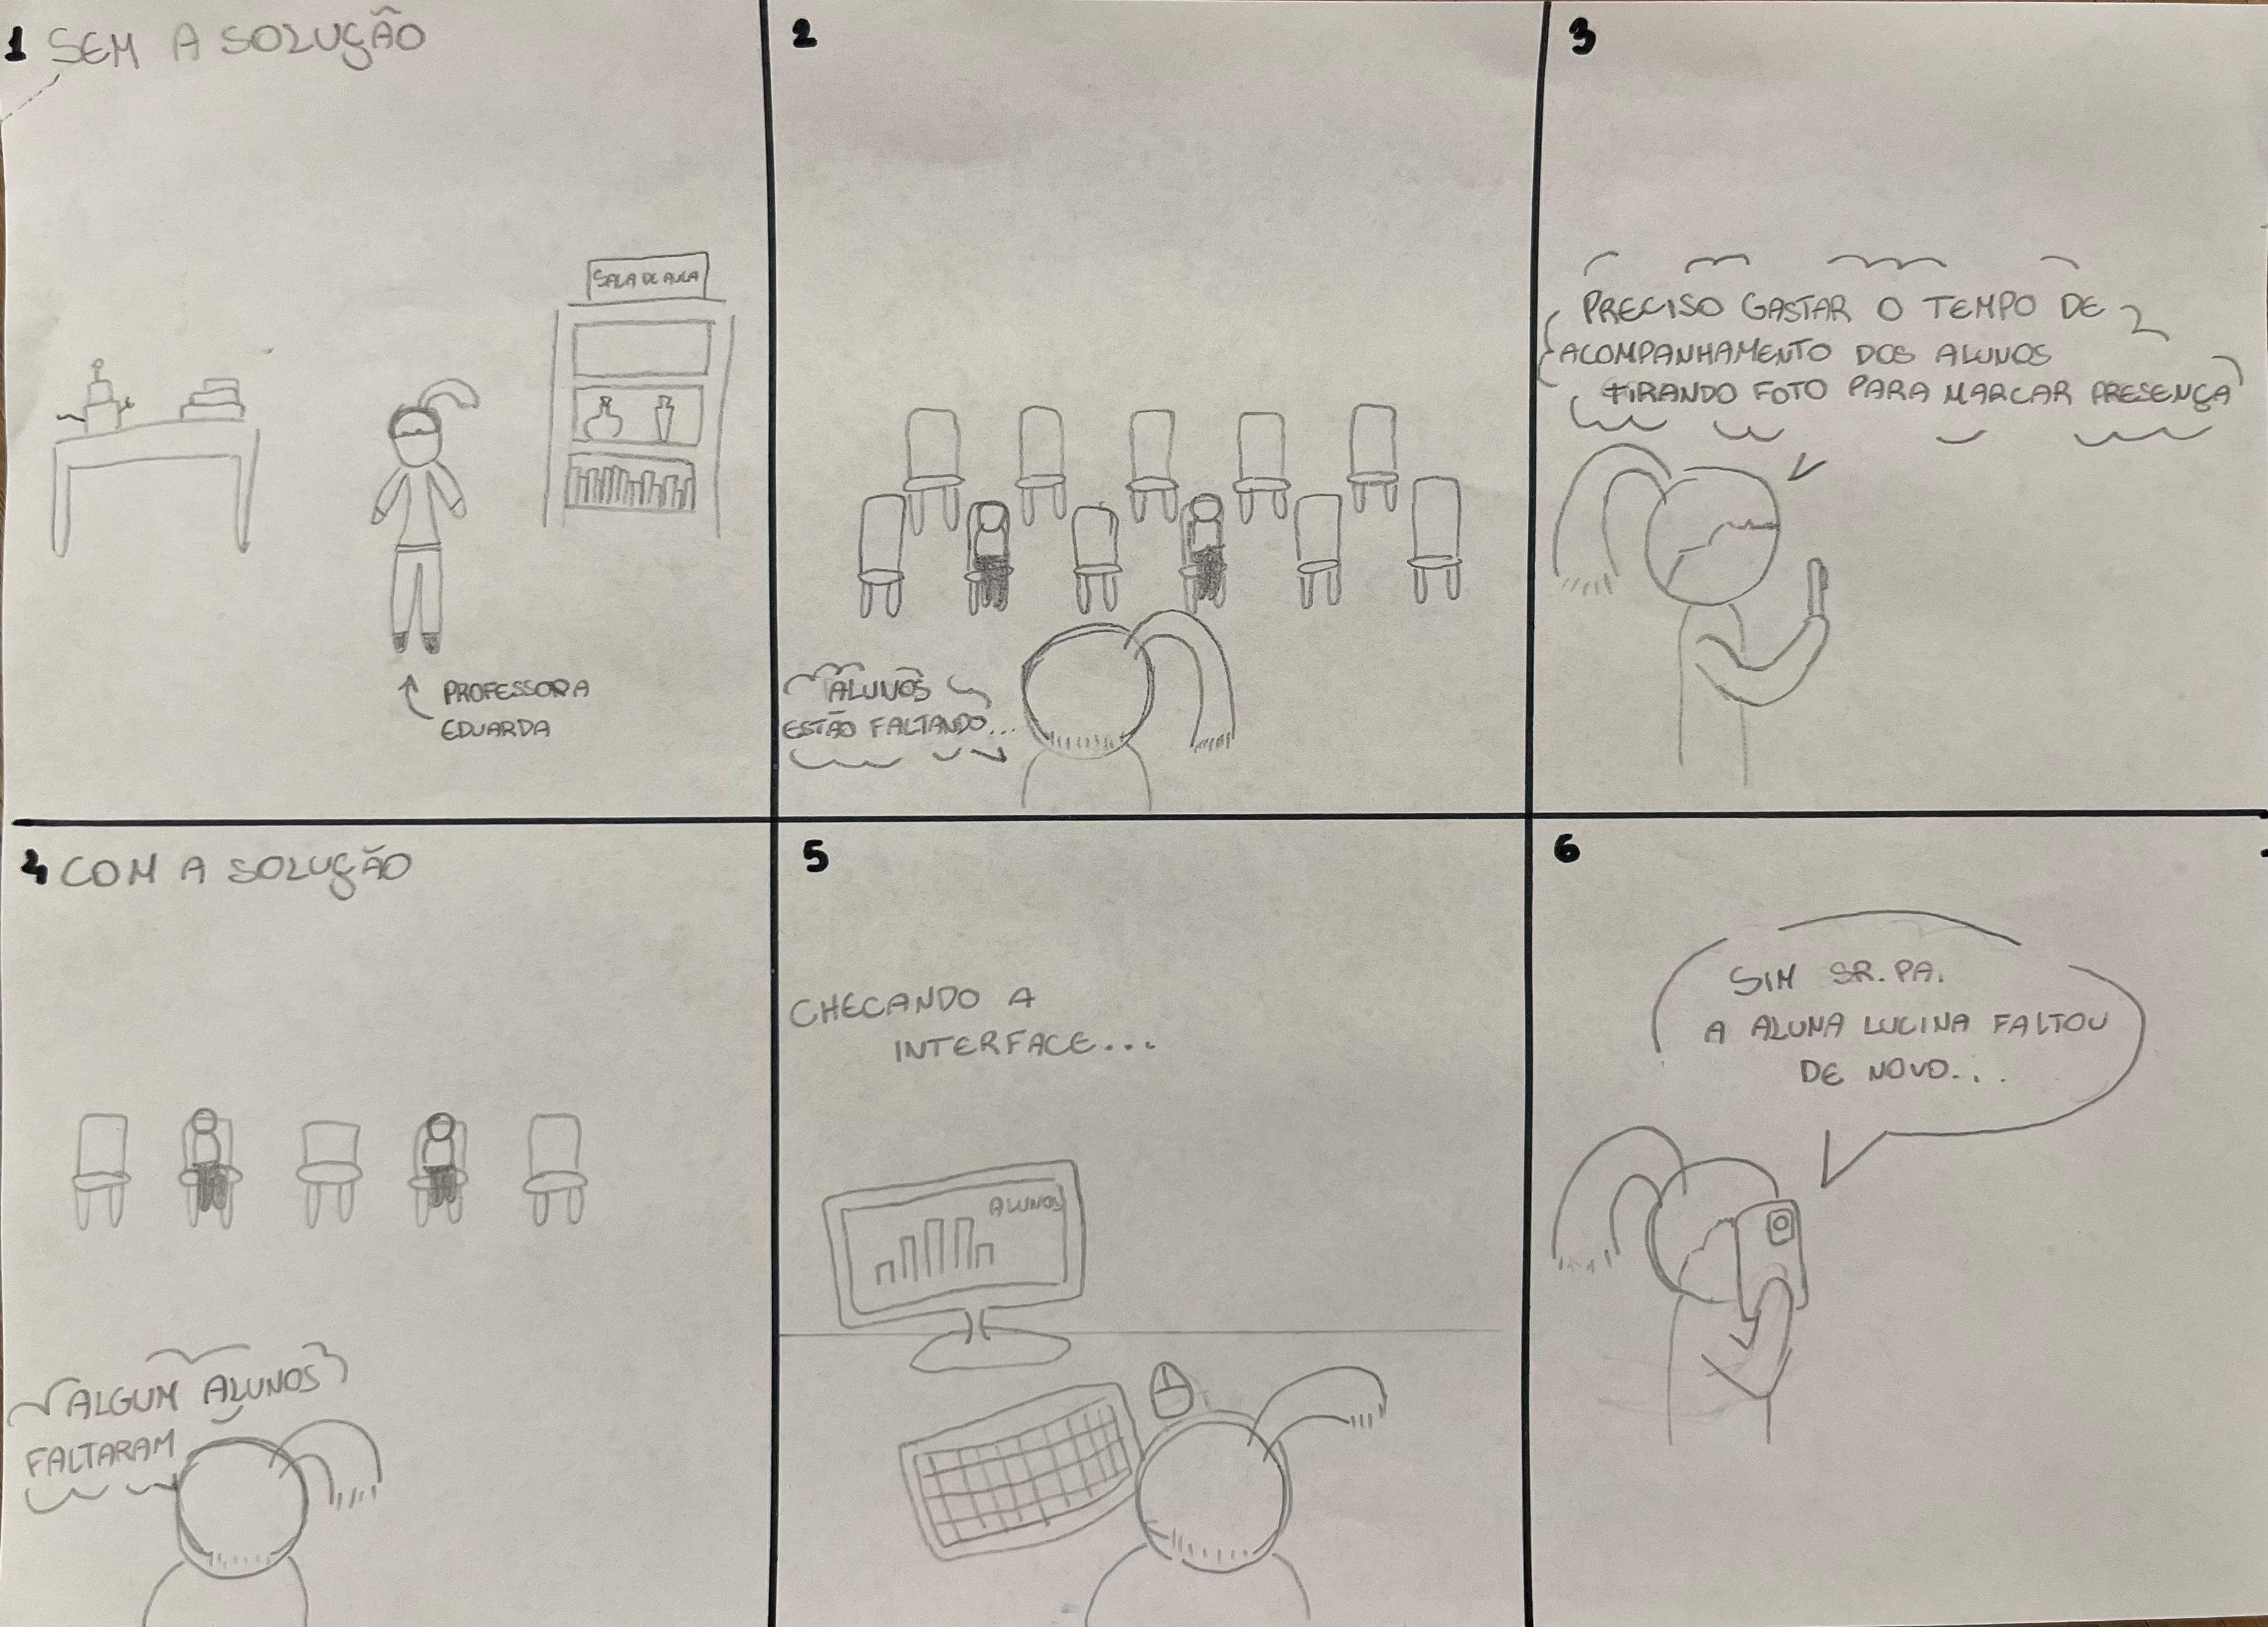 1 SEM A SOLUÇÃO
SALA DE AULA
PROFESSORA
EDUARDA
2
ALUNOS
ESTÃO FALTANDO...
3
PRECISO GASTAR O TEMPO DE
ACOMPANHAMENTO DOS ALUNOS
TIRANDO FOTO PARA MARCAR PRESENÇA
4 COM A SOLUÇÃO
ALGUM ALUNOS
FALTARAM
5
CHECANDO A
INTERFACE...
ALUNOS
6
SIM SR. PA.
A ALUNA LUCINA FALTOU
DE NOVO...